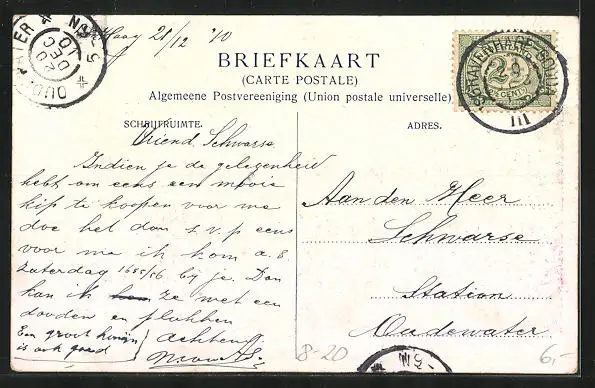 Haag 21/12 '10
BRIEFKAART
(CARTE POSTALE)
Algemeene Postvereeniging (Union postale universelle)
SCHRIJFRUIMTE.
ADRES.
Vriend Schwarse
Indien je de gelegenheid
hebt om eens een mooie
kip te koopen voor me
doe het dan s.v.p eens
voor me ik kom a.s
Zaterdag bij je. Dan
kan ik ze met een
dooden en plukken
Een groot konijn
is ook goed
achtend
Aan den Heer
Schwarse
Station
Oudewater
OUDEWATER
20 DEC 10
'S GRAVENHAGE-GOUDA
III
2½
CENT
8-20
6,-